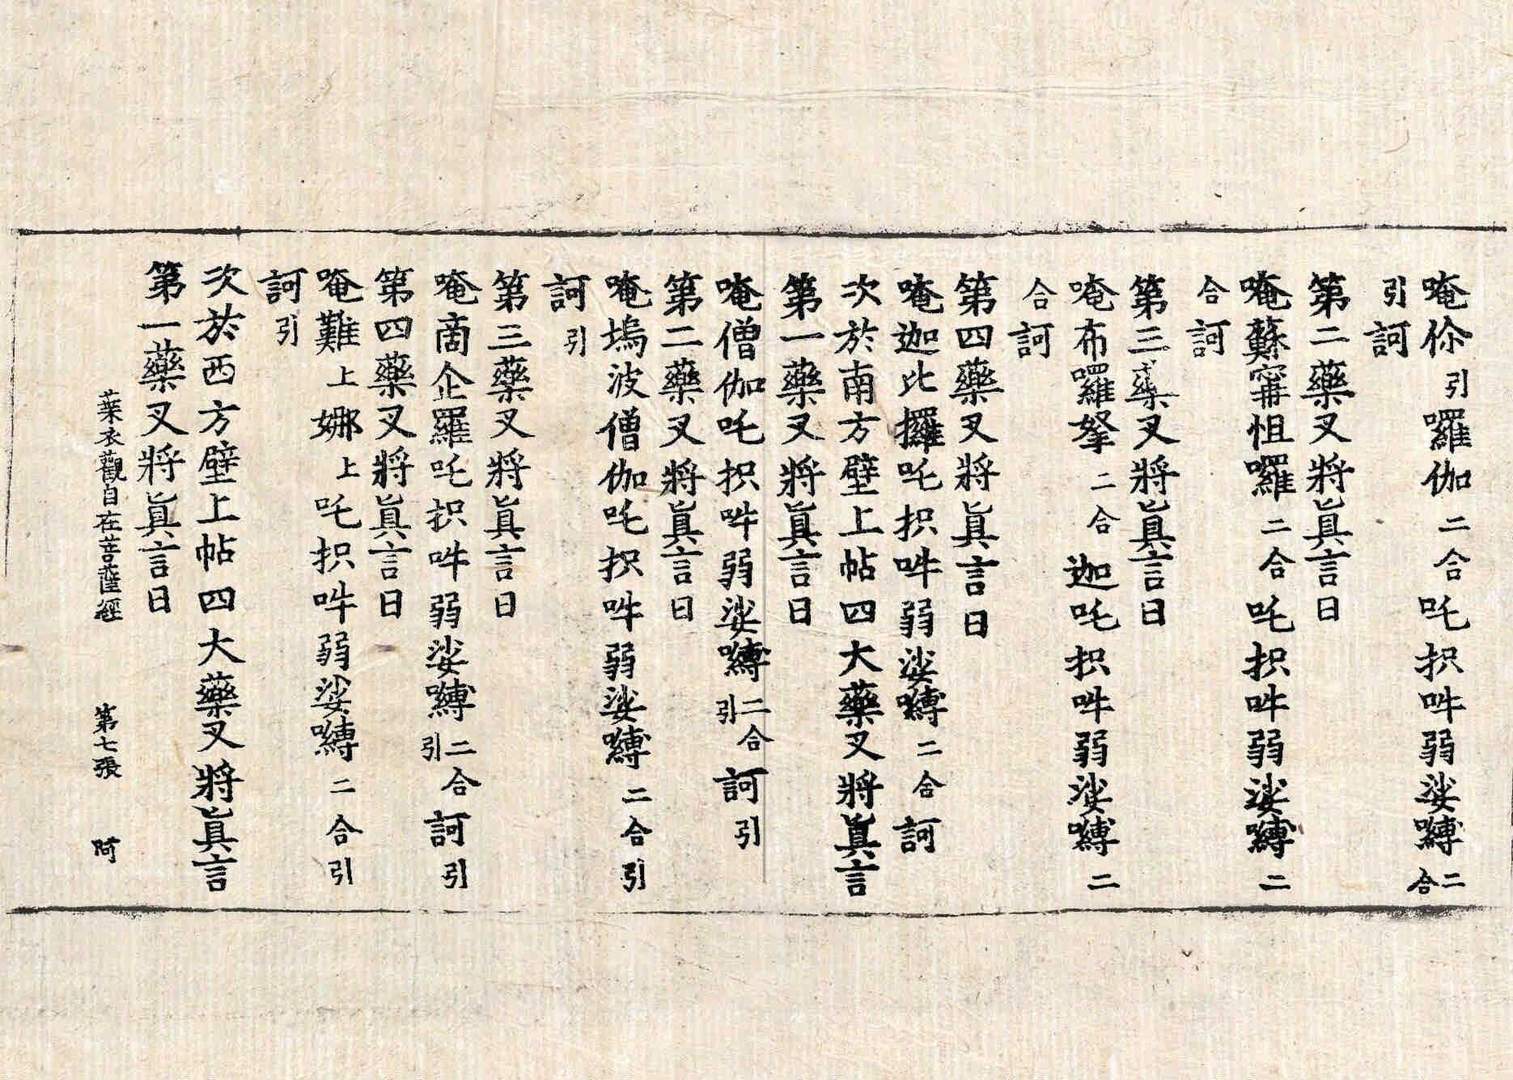 唵伱引囉伽二合吒抧吽弱娑嚩二合
引訶
第二藥叉將眞言曰
唵蘇甯怛囉二合吒抧吽弱娑嚩二
合訶
第三藥叉將眞言曰
唵布囉拏二合迦吒抧吽弱娑嚩二
合訶
第四藥叉將眞言曰
唵迦比攞吒抧吽弱娑嚩二合訶
次於南方壁上帖四大藥叉將眞言
第一藥叉將眞言曰
唵僧伽吒抧吽弱娑嚩二合引訶引
第二藥叉將眞言曰
唵塢波僧伽吒抧吽弱娑嚩二合引
訶引
第三藥叉將眞言曰
唵啇企羅吒抧吽弱娑嚩二合引訶引
第四藥叉將眞言曰
唵難上娜上吒抧吽弱娑嚩二合引
訶引
次於西方壁上帖四大藥叉將眞言
第一藥叉將眞言曰
葉衣觀自在菩薩經 第七張 阿